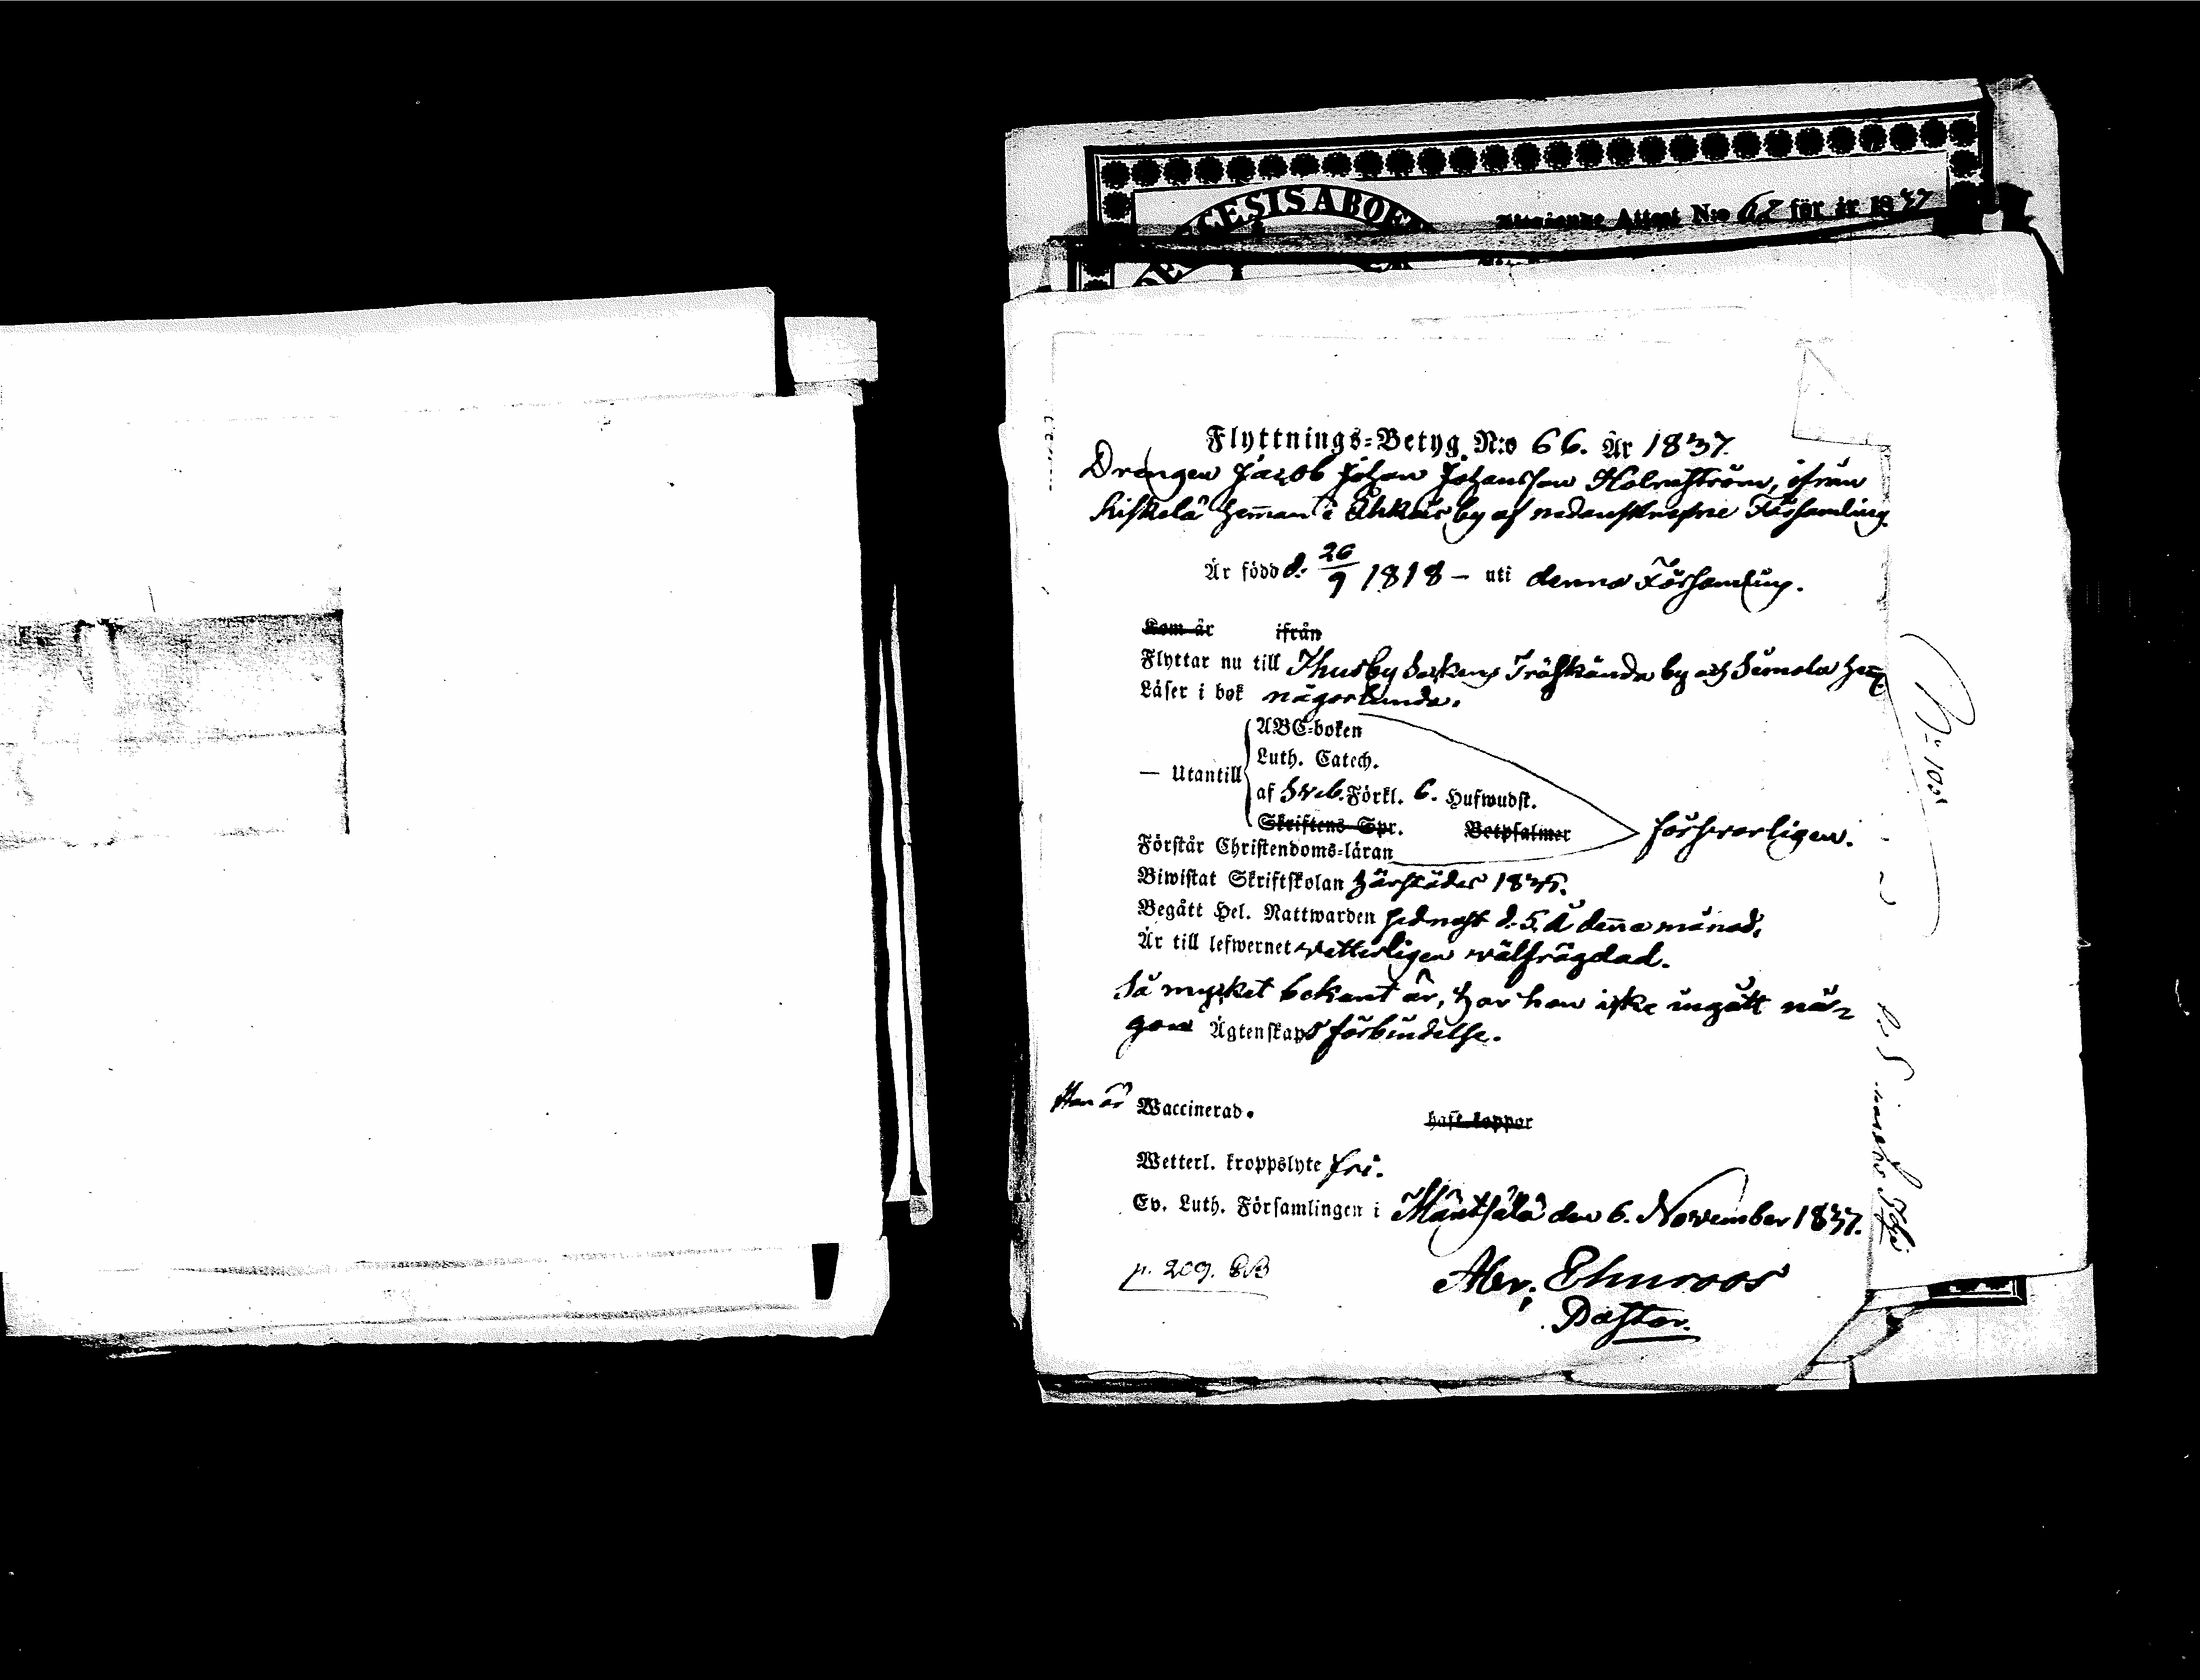 CESIS ABOE
Attest N:o 62 för år 1837
Flyttnings-Betyg N:o 66. År 1837.
Drengen Jacob Johan Johansson Holmström, ifrån
hemman i by af nedanskrefne Församling
Är född d. 26/9 1818 – uti denna Församling.
Kom år ifrån
Flyttar nu till Thusby Sockens Träskända by och
Läser i bok någorlunda.
— Utantill
ABC-boken
Luth. Catech.
af Sveb. Förkl. 6. Hufwudst.
Skriftens Spr. Betpsalmer
Förstår Christendoms-läran
försvarligen.
Biwistat Skriftskolan härstädes
Begått Hel. Nattwarden sednast d. 5. denna månad.
Är till lefwernet wetterligen wälfrägdad.
Så mycket bekant är, har han icke ingått nå-
gon Ägtenskaps förbindelse.
Han är Waccinerad. haft koppor
Wetterl. kroppslyte fri.
Ev. Luth. Församlingen i Mäntsälä den 6. November 1837.
p. 209.
Abr. Ehnroos
Pastor.